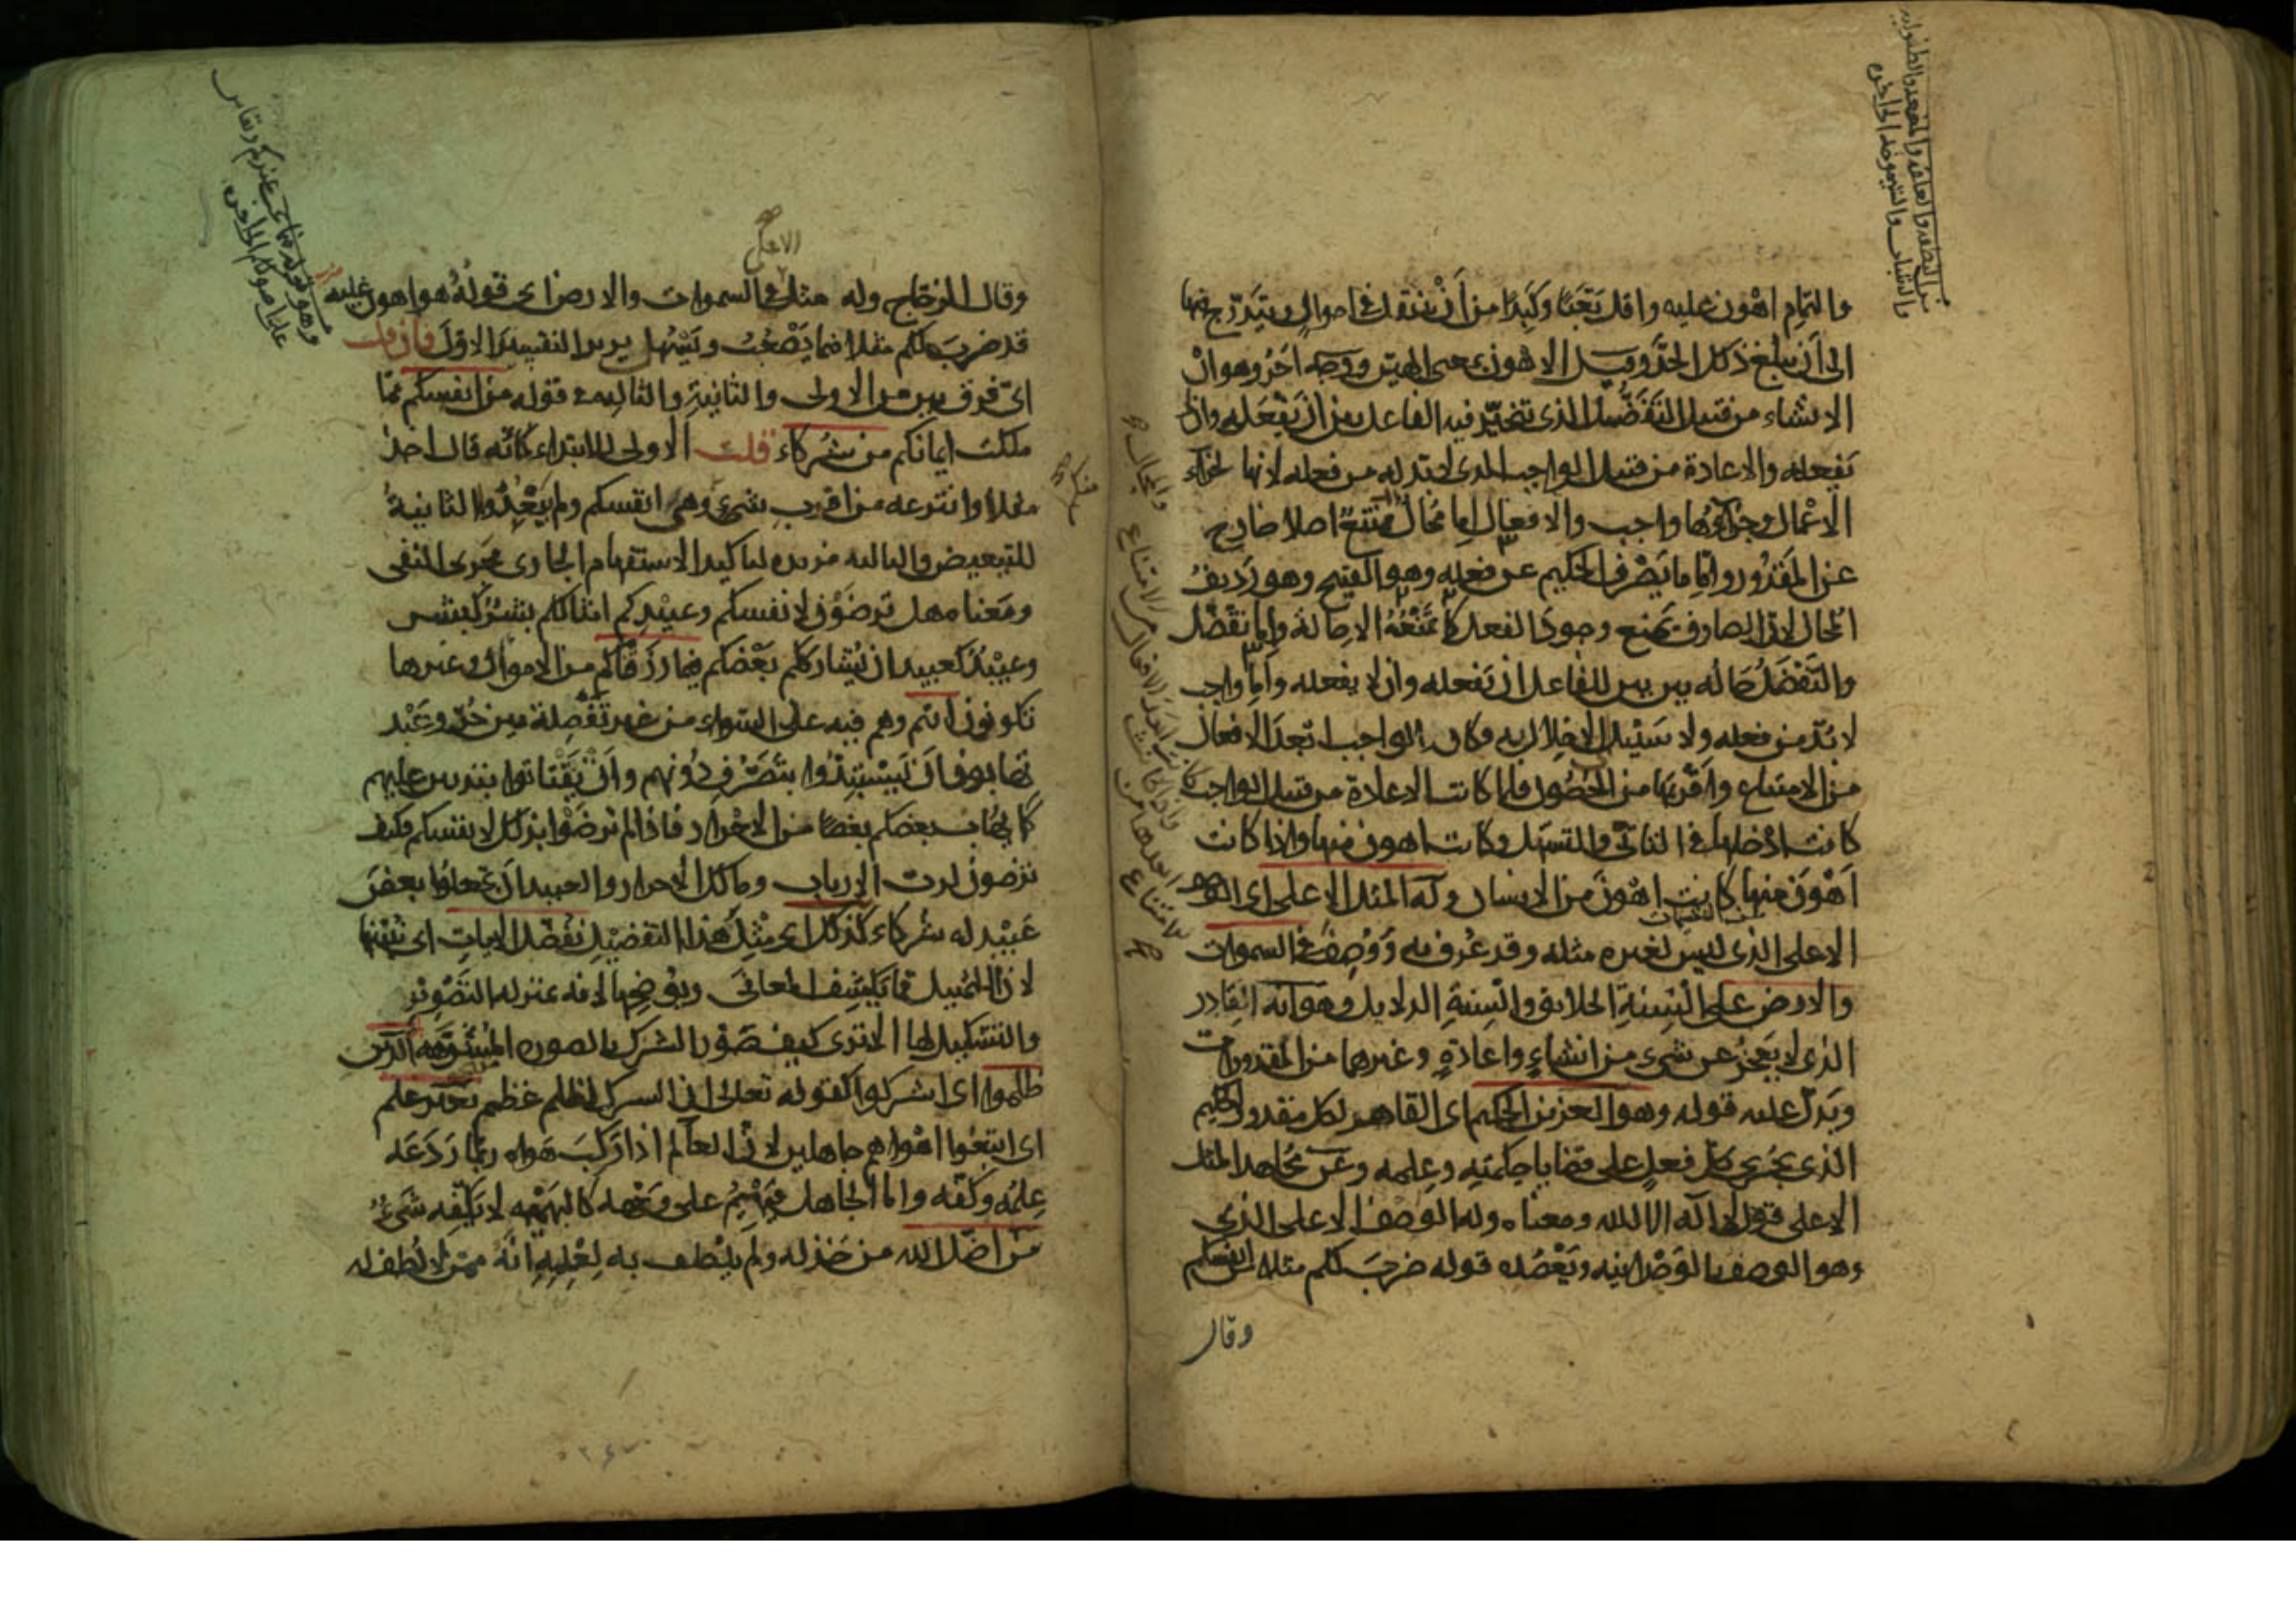 والتمام اهون عليه واقل تعبا وكبدا من أن يتنقل في احوال ويتدرج فيها
الى أن يبلغ ذلك الحد وقيل الاهون بمعنى الهين ووجه اخر وهو ان
الانشاء من قبيل التفضل الذى تخير فيه الفاعل بين ان يفعله وان لا
يفعله والاعادة من قبيل الواجب الذى لا بد له من فعله لانها لجزاء
الاعمال وجزاؤها واجب والافعال اما محال ممتنع اصلا خارج
عن المقدور واما ما يصرف الحكيم عن فعله وهو القبيح وهو رديف
المحال لان الصارف يمنع وجود الفعل كما تمنعه الاحالة واما تفضل
والتفضل حاله بين بين للفاعل ان يفعله وان لا يفعله واما واجب
لا بد من فعله ولا سبيل الى الاخلال به وكان الواجب ابعد الافعال
من الامتناع واقربها من الحصول فلما كانت الاعادة من قبيل الواجب
كانت ادخلها في التاتى والتسهل وكانت اهون منها واذا كانت
اهون منها كانت اهون من الانشاء وله المثل الاعلى اى الوصف
الاعلى الذى ليس لغيره مثله وقد عرف به ووصف في السموات
والارض على السنة الخلايق والسنة الدلايل وهو انه القادر
الذى لا يعجز عن شىء من انشاء واعادة وغيرهما من المقدورات
ويدل عليه قوله وهو العزيز الحكيم اى القاهر لكل مقدور الحكيم
الذى يجرى كل فعل على قضايا حكمته وعلمه وعن مجاهد المثل
الاعلى قول لا اله الا الله ومعناه وله الوصف الاعلى الذى
وهو الوصف بالوحدانية ويعضده قوله ضرب لكم مثلا من انفسكم
وقال
الاعلى
وقال الزجاج وله مثل في السموات والارض اى قوله هو اهون عليه
قد ضرب لكم مثلا فيما يصعب ويسهل يريد التفسير الاول فان قلت
اى فرق بين من الاولى والثانية والثالثة في قوله من انفسكم مما
ملكت ايمانكم من شركاء قلت الاولى للابتداء كانه قال اخذ
مثلا وانتزعه من اقرب شىء وهى انفسكم ولم يبعد والثانية
للتبعيض والثالثة مزيدة لتاكيد الاستفهام الجارى مجرى النفى
ومعناه هل ترضون لانفسكم وعبيدكم امثالكم بشر كبشر
وعبيد كعبيد ان يشارككم بعضكم فيما رزقناكم من الاموال وغيرها
تكونون انتم وهم فيه على السواء من غير تفصلة بين حر وعبد
تهابون ان يستبدوا بتصرف دونهم وان يفتاتوا بتدبير عليهم
كما يهاب بعضكم بعضا من الاحرار فاذا لم ترضوا بذلك لانفسكم فكيف
ترضون لرب الارباب ومالك الاحرار والعبيد ان تجعلوا بعض
عبيده له شركاء كذلك اى مثل هذا التفصيل نفصل الايات اى نبينها
لان التمثيل مما يكشف المعانى ويوضحها لانه بمنزلة التصوير
والتشكيل لها الا ترى كيف صور الشرك بالصورة المشوهة الذين
ظلموا اى اشركوا كقوله تعالى ان الشرك لظلم عظيم بغير علم
اى اتبعوا اهواهم جاهلين لان العالم اذا ركب هواه ربما ردعه
علمه وكفه واما الجاهل فيهيم على وجهه كالبهيمة لا يكفه شىء
من اضل الله من خذله ولم يلطف به لعلمه انه ممن لا لطف له